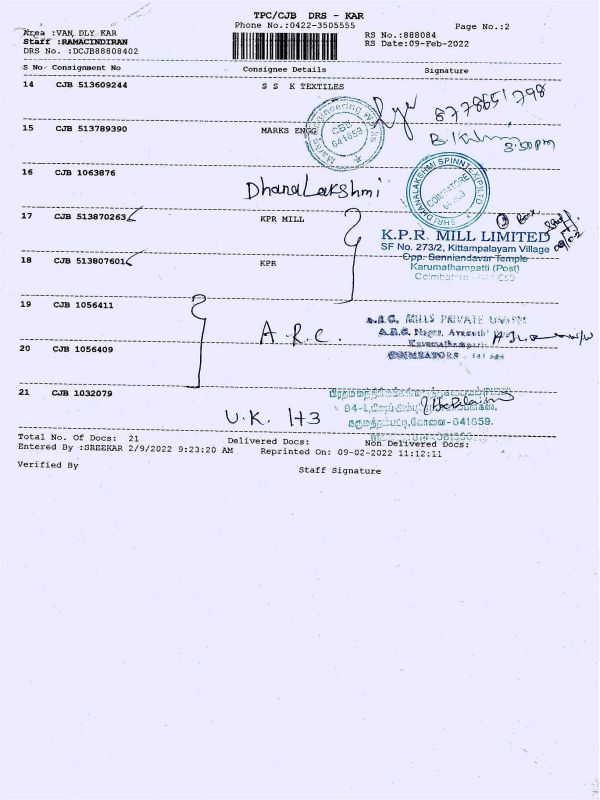 TPC/CJB DRS - KAR
Area :VAN DLY KAR
Phone No.:0422-3505555
Page No.:2
Staff :RAMACINDIRAN
RS No.:888084
DRS No. :DCJB88808402
RS Date:09-Feb-2022
S No Consignment No Consignee Details Signature
14 CJB 513609244 S S K TEXTILES
15 CJB 513789390 MARKS ENGG
CBE
641659
3:50pm
16 CJB 1063876 DhanaLakshmi
SHRI DHANALAKSHMI SPINNTEX (P) LTD
COIMBATORE
17 CJB 513870263 KPR MILL
K.P.R. MILL LIMITED
SF No. 273/2, Kittampalayam Village
18 CJB 513807601 KPR
Opp. Senniandavar Temple
Karumathampatti (Post)
19 CJB 1056411
A.R.C.
MILLS PRIVATE
20 CJB 1056409
COIMBATORE
21 CJB 1032079
U.K. 1+3
கருமத்தம்பட்டி,கோவை-641659.
Total No. Of Docs: 21 Delivered Docs: Non Delivered Docs:
Entered By :SREEKAR 2/9/2022 9:23:20 AM Reprinted On: 09-02-2022 11:12:11
Verified By
Staff Signature